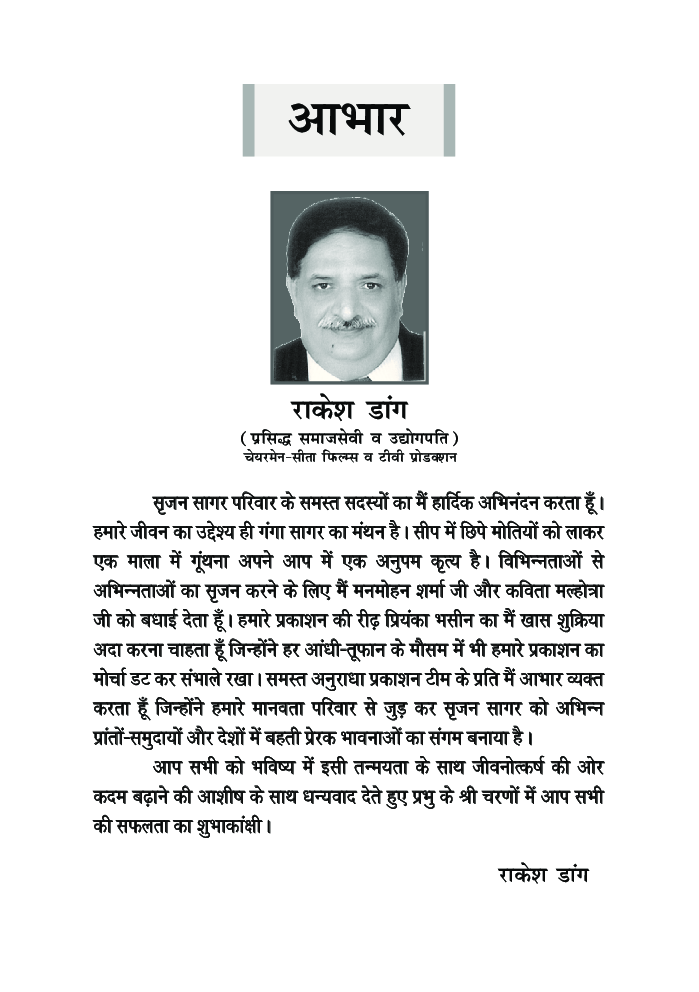 आभार
राकेश डांग
( प्रसिद्ध समाजसेवी व उद्योगपति )
चेयरमेन-सीता फिल्म्स व टीवी प्रोडक्शन
सृजन सागर परिवार के समस्त सदस्यों का मैं हार्दिक अभिनंदन करता हूँ।
हमारे जीवन का उद्देश्य ही गंगा सागर का मंथन है। सीप में छिपे मोतियों को लाकर
एक माला में गूंथना अपने आप में एक अनुपम कृत्य है। विभिन्नताओं से
अभिन्नताओं का सृजन करने के लिए मैं मनमोहन शर्मा जी और कविता मल्होत्रा
जी को बधाई देता हूँ। हमारे प्रकाशन की रीढ़ प्रियंका भसीन का मैं खास शुक्रिया
अदा करना चाहता हूँ जिन्होंने हर आंधी-तूफान के मौसम में भी हमारे प्रकाशन का
मोर्चा डट कर संभाले रखा। समस्त अनुराधा प्रकाशन टीम के प्रति मैं आभार व्यक्त
करता हूँ जिन्होंने हमारे मानवता परिवार से जुड़ कर सृजन सागर को अभिन्न
प्रांतों-समुदायों और देशों में बहती प्रेरक भावनाओं का संगम बनाया है।
आप सभी को भविष्य में इसी तन्मयता के साथ जीवनोत्कर्ष की ओर
कदम बढ़ाने की आशीष के साथ धन्यवाद देते हुए प्रभु के श्री चरणों में आप सभी
की सफलता का शुभाकांक्षी।
राकेश डांग